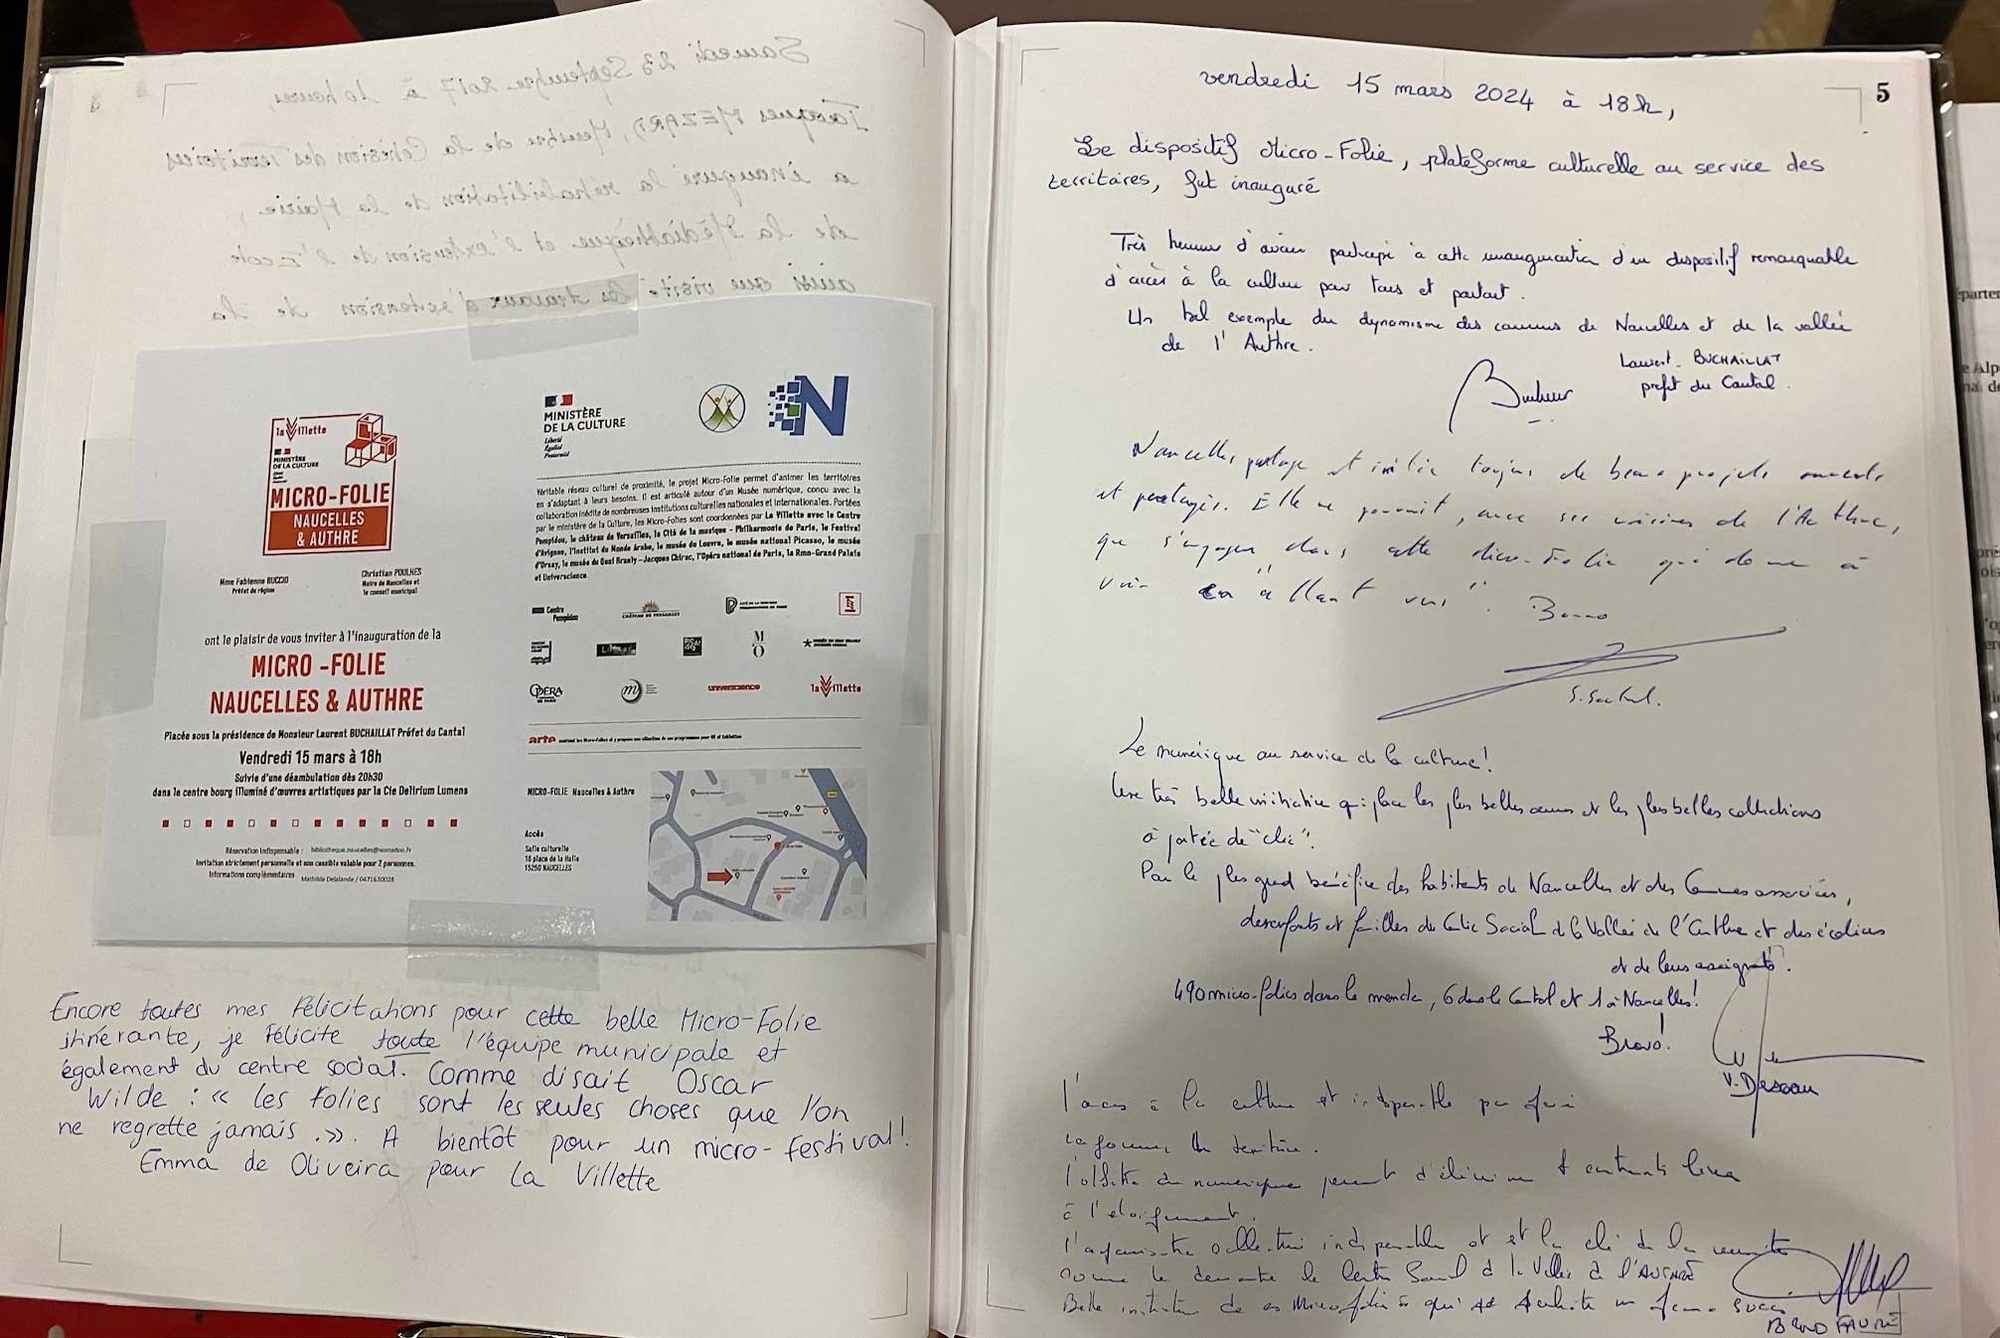 Samedi 23 Septembre 2017 à 10 heures,
Jacques MEZARD, Ministre de la Cohésion des Territoires
a inauguré la réhabilitation de la Mairie,
de la Médiathèque et l'extension de l'Ecole
ainsi que visité les travaux d'extension de la
la Villette
MINISTÈRE
DE LA CULTURE
MICRO-FOLIE
NAUCELLES
& AUTHRE
Mme Fabienne BUCCIO
Préfet de région
Christian POULHES
Maire de Naucelles et
le conseil municipal
ont le plaisir de vous inviter à l'inauguration de la
MICRO -FOLIE
NAUCELLES & AUTHRE
Placée sous la présidence de Monsieur Laurent BUCHAILLAT Préfet du Cantal
Vendredi 15 mars à 18h
Suivie d'une déambulation dès 20h30
dans le centre bourg illuminé d'œuvres artistiques par la Cie Delirium Lumens
Réservation indispensable : bibliotheque.naucelles@wanadoo.fr
Invitation strictement personnelle et non cessible valable pour 2 personnes.
Informations complémentaires Mathilde Delalande / 0471630028
MINISTÈRE
DE LA CULTURE
Liberté
Égalité
Fraternité
N
Véritable réseau culturel de proximité, le projet Micro-Folie permet d'animer les territoires
en s'adaptant à leurs besoins. Il est articulé autour d'un Musée numérique, conçu avec la
collaboration inédite de nombreuses institutions culturelles nationales et internationales. Portées
par le ministère de la Culture, les Micro-Folies sont coordonnées par La Villette avec le Centre
Pompidou, le château de Versailles, la Cité de la musique - Philharmonie de Paris, le Festival
d'Avignon, l'Institut du Monde Arabe, le musée du Louvre, le musée national Picasso, le musée
d'Orsay, le musée du Quai Branly-Jacques Chirac, l'Opéra national de Paris, la Rmn-Grand Palais
et Universcience
Centre
Pompidou
CHÂTEAU DE VERSAILLES
M
O
OPÉRA
universcience
la Villette
arte
MICRO-FOLIE Naucelles & Authre
Accès
Salle culturelle
18 place de la Halle
15250 NAUCELLES
Encore toutes mes félicitations pour cette belle Micro-Folie
itinérante, je félicite toute l'équipe municipale et
également du centre social. Comme disait Oscar
Wilde : « les folies sont les seules choses que l'on
ne regrette jamais.». A bientôt pour un micro-festival!
Emma de Oliveira pour La Villette
5
vendredi 15 mars 2024 à 18h,
Le dispositif Micro-Folie, plateforme culturelle au service des
territoires, fut inauguré
Très heureux d'avoir participé à cette inauguration d'un dispositif remarquable
d'accès à la culture pour tous et partout.
Un bel exemple du dynamisme des communes de Naucelles et de la vallée
de l'Authre.
Laurent BUCHAILLAT
préfet du Cantal.
Naucelles partage et initie toujours de beaux projets
et partagés. Elle ne pouvait, avec ses voisines de l'Authre,
que s'engager dans cette micro-folie qui donne à
voir en "allant vers". Bravo
Le numérique au service de la culture!
Une très belle initiative qui place les plus belles œuvres et les plus belles collections
à portée de "clic".
Pour le plus grand bénéfice des habitants de Naucelles et des Communes associées,
des enfants et familles du Centre Social de la Vallée de l'Authre et des écoliers
et de leurs enseignants.
490 micro-folies dans le monde, 6 dans le Cantal et 1 à Naucelles!
Bravo!
l'accès à la culture est indispensable
du territoire.
du numérique permet d'éliminer
à l'éloignement.
indispensable et est la clé de la
comme le démontre le Centre Social de la Vallée de l'AUTHRE
Belle initiative de
BRUNO FAURE